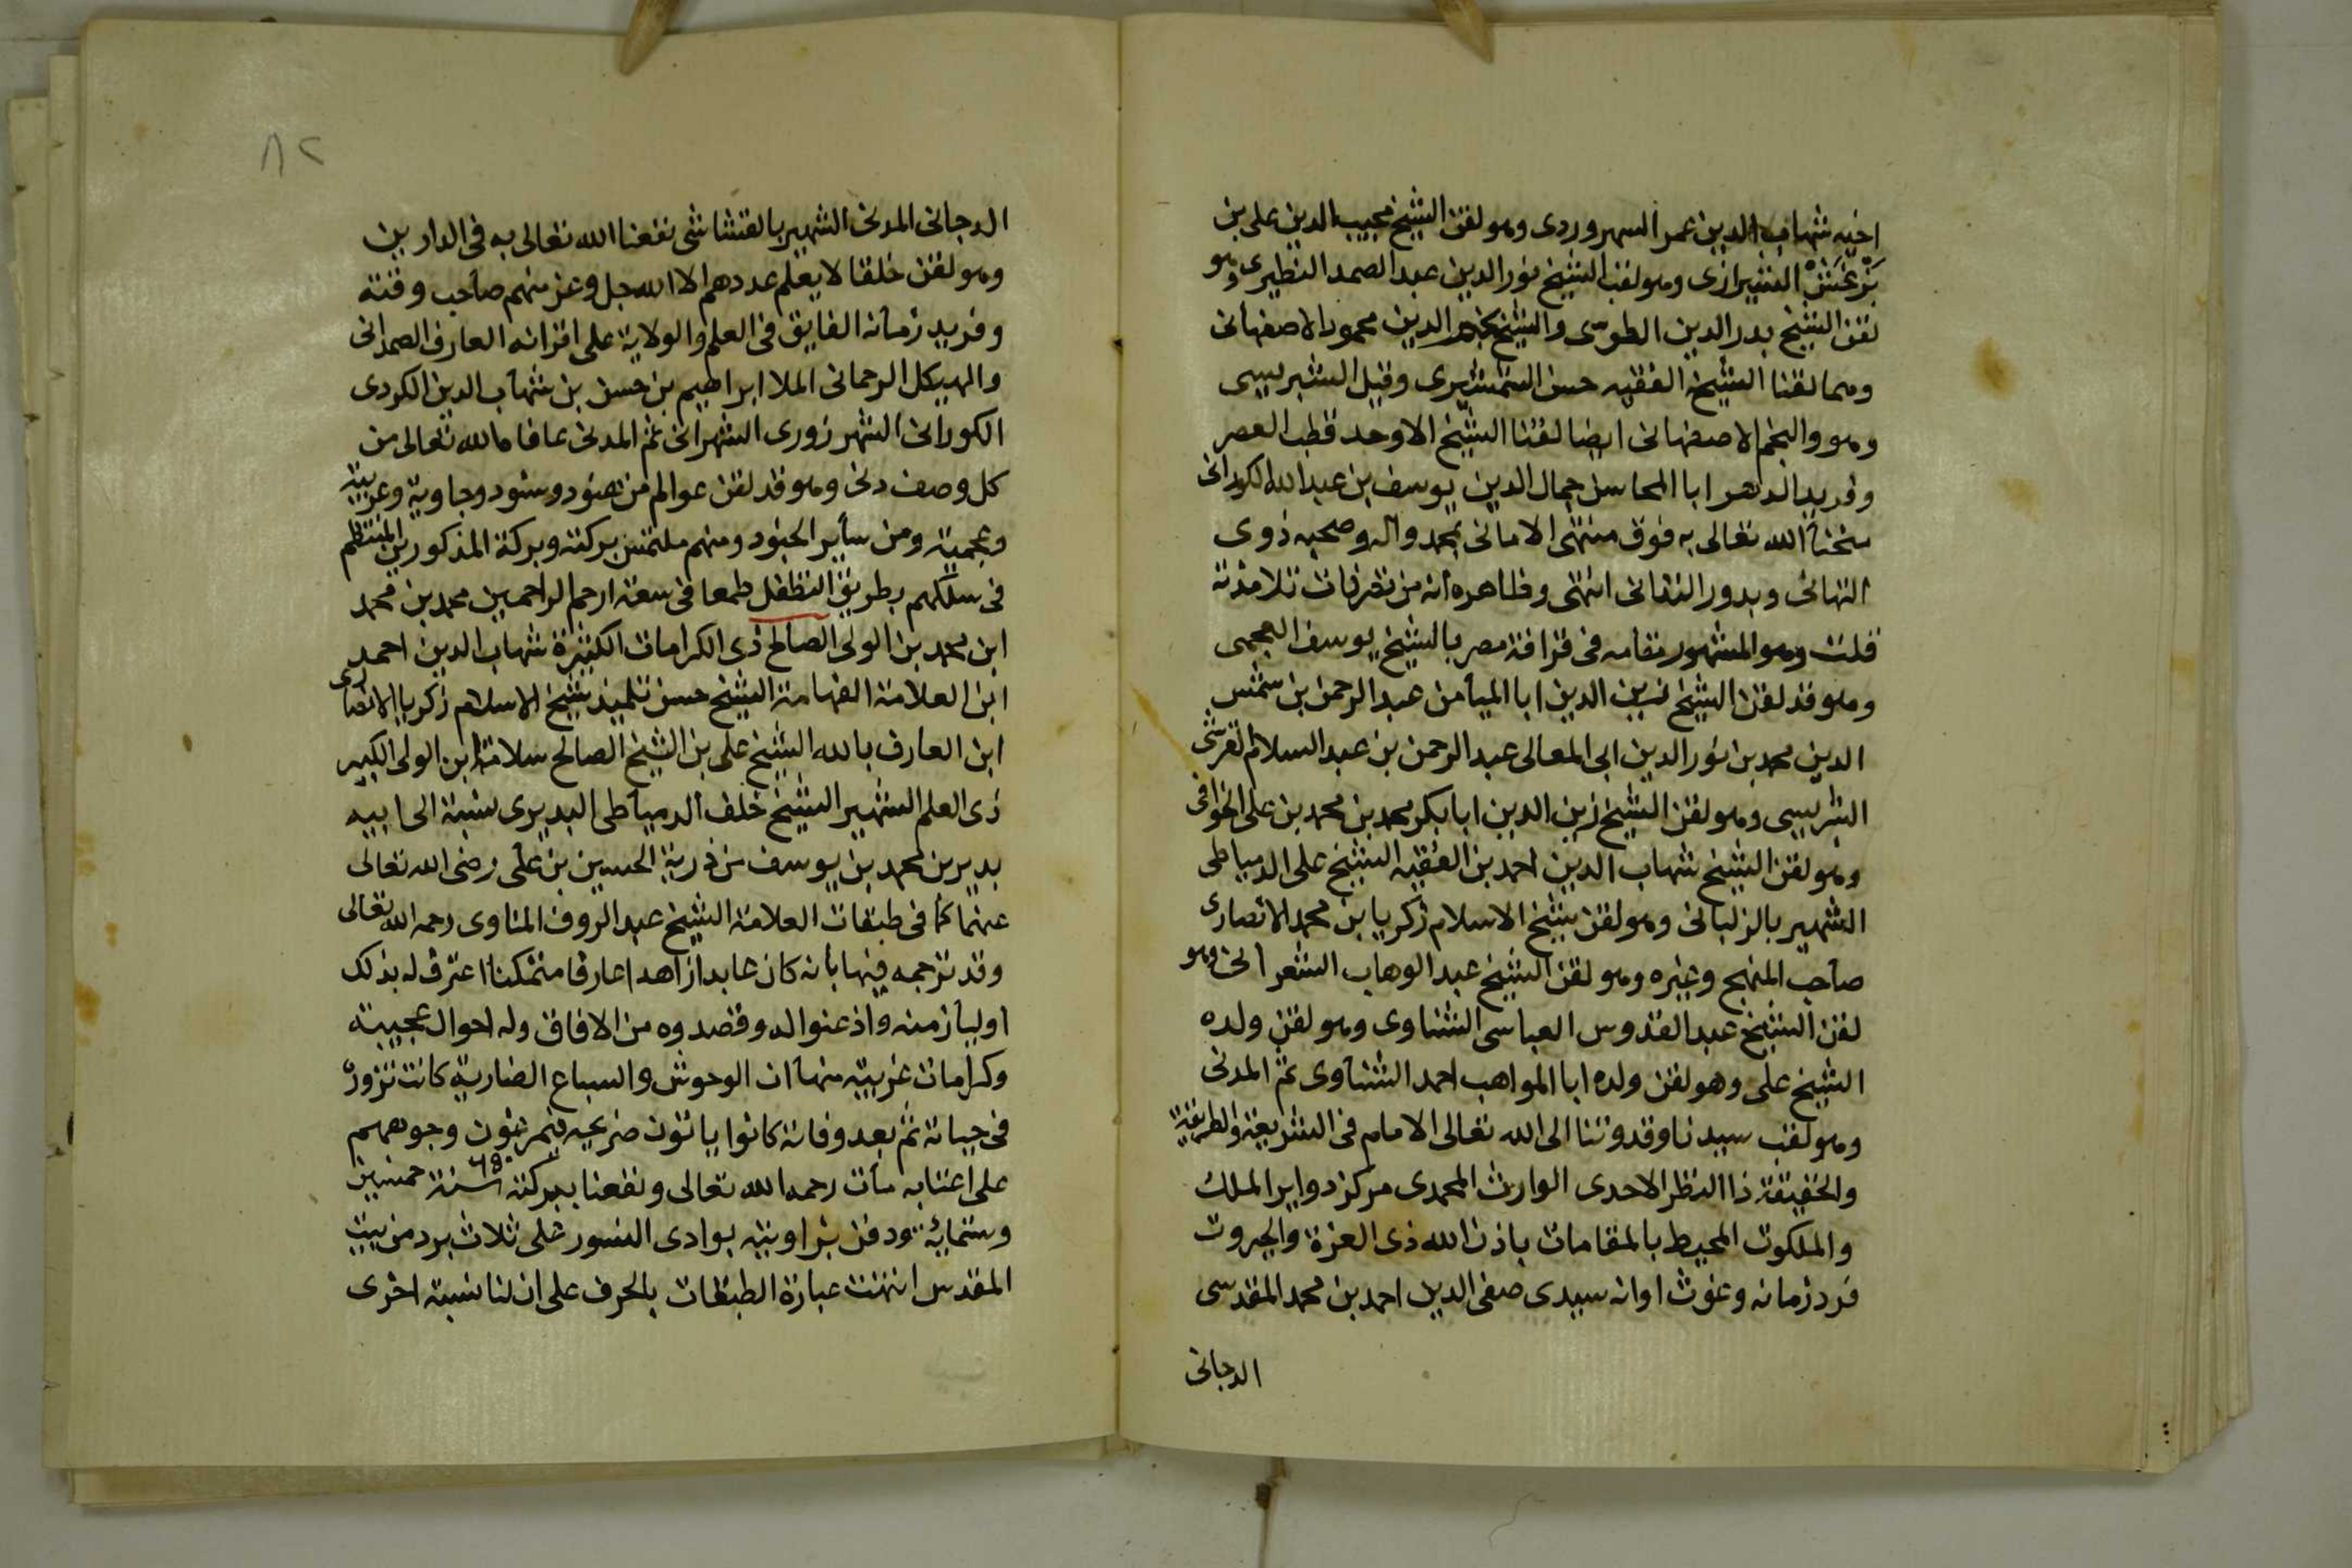 اخيه شهاب الدين عمر السهروردى وهو لقن الشيخ نجيب الدين على بن
بَزْغَشْ الشيرازى وهو لقن الشيخ نور الدين عبد الصمد النطيرى وهو
لقن الشيخ بدر الدين الطوسى والشيخ نجم الدين محمود الاصفهانى
وهما لقنا الشيخ الفقيه حسن الشمشيرى وقيل الشبريسى
وهو والنجم الاصفهانى ايضا لقنا الشيخ الاوحد قطب العصر
وفريد الدهر ابا المحاسن جمال الدين يوسف بن عبد الله الكورانى
منحنا الله تعالى به فوق منتهى الامانى بمحمد واله وصحبه ذوى
التهانى وبدور التدانى انتهى وظاهره انه من تصرفات تلامذته
قلت وهو المشهور مقامه فى قرافة مصر بالشيخ يوسف العجمى
وهو قد لقن الشيخ زين الدين ابا الميامن عبد الرحمن بن شمس
الدين محمد بن نور الدين ابى المعالى عبد الرحمن بن عبد السلام القرشى
الشبريسى وهو لقن الشيخ زين الدين ابا بكر محمد بن محمد بن على الخوافى
وهو لقن الشيخ شهاب الدين احمد بن الفقيه الشيخ على الدمياطى
الشهير بالزلبانى وهو لقن شيخ الاسلام زكريا بن محمد الانصارى
صاحب المنهج وغيره وهو لقن الشيخ عبد الوهاب الشعرانى وهو
لقن الشيخ عبد القدوس العباسى الشناوى وهو لقن ولده
الشيخ على وهو لقن ولده ابا المواهب احمد الشناوى ثم المدنى
وهو لقن سيدنا وقدوتنا الى الله تعالى الامام فى الشريعة والطريقة
والحقيقة ذا النظر الاحدى الوارث المحمدى مركز دواير الملك
والملكوت المحيط بالمقامات باذن الله ذى العزة والجبروت
فرد زمانه وغوث اوانه سيدى صفى الدين احمد بن محمد المقدسى
الدجانى
٨٢
الدجانى المدنى الشهير بالقشاشى نفعنا الله تعالى به فى الدارين
وهو لقن خلقا لا يعلم عددهم الا الله جل وعز منهم صاحب وقته
وفريد زمانه الفايق فى العلم والولاية على اقرانه العارف الصمدانى
والهيكل الرحمانى الملا ابراهيم بن حسن بن شهاب الدين الكردى
الكورانى الشهرزورى الشهرانى ثم المدنى عافاه الله تعالى من
كل وصف دنى وهو قد لقن عوالم من هنود وسود وجاوية وغربية
وعجمية ومن ساير الجنود ومنهم ملتمس بركته وبركة المذكورين المنتظم
فى سلكهم بطريق التطفل طمعا فى سعة ارحم الراحمين محمد بن محمد
ابن محمد بن الولى الصالح ذى الكرامات الكثيرة شهاب الدين احمد
ابن العلامة الفهامة الشيخ حسن تلميذ شيخ الاسلام زكريا الانصارى
ابن العارف بالله الشيخ على بن الشيخ الصالح سلامة ابن الولى الكبير
ذى العلم الشهير الشيخ خلف الدمياطى البديرى نسبة الى ابيه
بدير بن محمد بن يوسف من ذرية الحسين بن على رضى الله تعالى
عنهما كما فى طبقات العلامة الشيخ عبد الروف المناوى رحمه الله تعالى
وقد ترجمه فيها بانه كان عابدا زاهدا عارفا متمكنا اعترف له بذلك
اوليا زمنه واذعنوا له وقصدوه من الافاق وله احوال عجيبة
وكرامات غريبة منها ان الوحوش والسباع الضارية كانت تزوره
فى حياته ثم بعد وفاته كانوا ياتون ضريحه فيمرغون وجوههم
على اعتابه مات رحمه الله تعالى ونفعنا ببركته سنة ٦٥٠ خمسين
وستمائة ودفن بزاويته بوادى النسور على ثلاث برد من بيت
المقدس انتهت عبارة الطبقات بالحرف على ان لنا نسبة اخرى